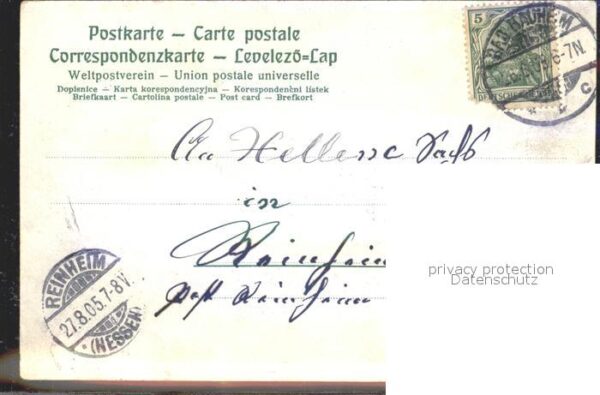 Postkarte – Carte postale
Correspondenzkarte – Levelező-Lap
Weltpostverein – Union postale universelle
Dopisnice – Karta korespondencyjna – Korespondenční lístek
Briefkaart – Cartolina postale – Post card – Brefkort
5
BAD NAUHEIM
6-7N.
c
An
in
Reinheim
Post Reinheim
REINHEIM
27.8.05.7-8V.
(HESSEN)
privacy protection
Datenschutz